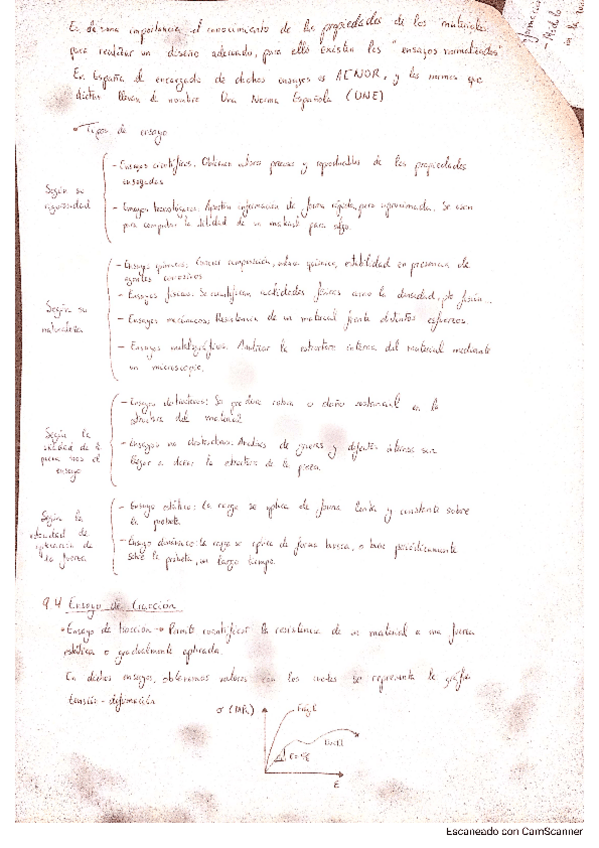 Es de suma importancia el conocimiento de las propiedades de los materiales
para realizar un diseño adecuado, para ello existen los "ensayos normalizados"
En España el encargado de dichos ensayos es AENOR, y las normas que
dictan llevan de nombre Una Norma Española (UNE)
• Tipos de ensayo
Según su
rigurosidad
- Ensayos científicos. Obtienen valores precisos y reproducibles de las propiedades
ensayadas
- Ensayos tecnológicos. Aportan información de forma rápida, pero aproximada. Se usan
para comprobar la utilidad de un material para algo.
Según su
naturaleza
- Ensayo químicos: Conocer composición, química, estabilidad en presencia de
agentes corrosivos
- Ensayos físicos. Se cuantifican físicas como la densidad, pto fusión...
- Ensayos mecánicos: Resistencia de un material frente distintos esfuerzos.
- Ensayos metalográficos. Analizar la estructura interna del material mediante
un microscopio.
Según la
utilidad de la
pieza tras el
ensayo
- Ensayos destructivos: Se produce rotura o daño sustancial en la
estructura del material
- Ensayos no destructivos. Análisis de grietas y defectos internos sin
llegar a dañar la estructura de la pieza.
Según la
velocidad de
aplicación de
la fuerza
- Ensayo estático: la carga se aplica de forma lenta y constante sobre
la probeta.
- Ensayo dinámico: la carga se aplica de forma brusca, o bien periódicamente
sobre la probeta, un largo tiempo.
9.4 Ensayo de tracción
• Ensayo de tracción → Permite cuantificar la resistencia de un material a una fuerza
estática o gradualmente aplicada.
En dichos ensayos, obtenemos valores con los cuales se representa la gráfica
tensión - deformación
σ (MPa)
Frágil
Dúctil
ε
Escaneado con CamScanner